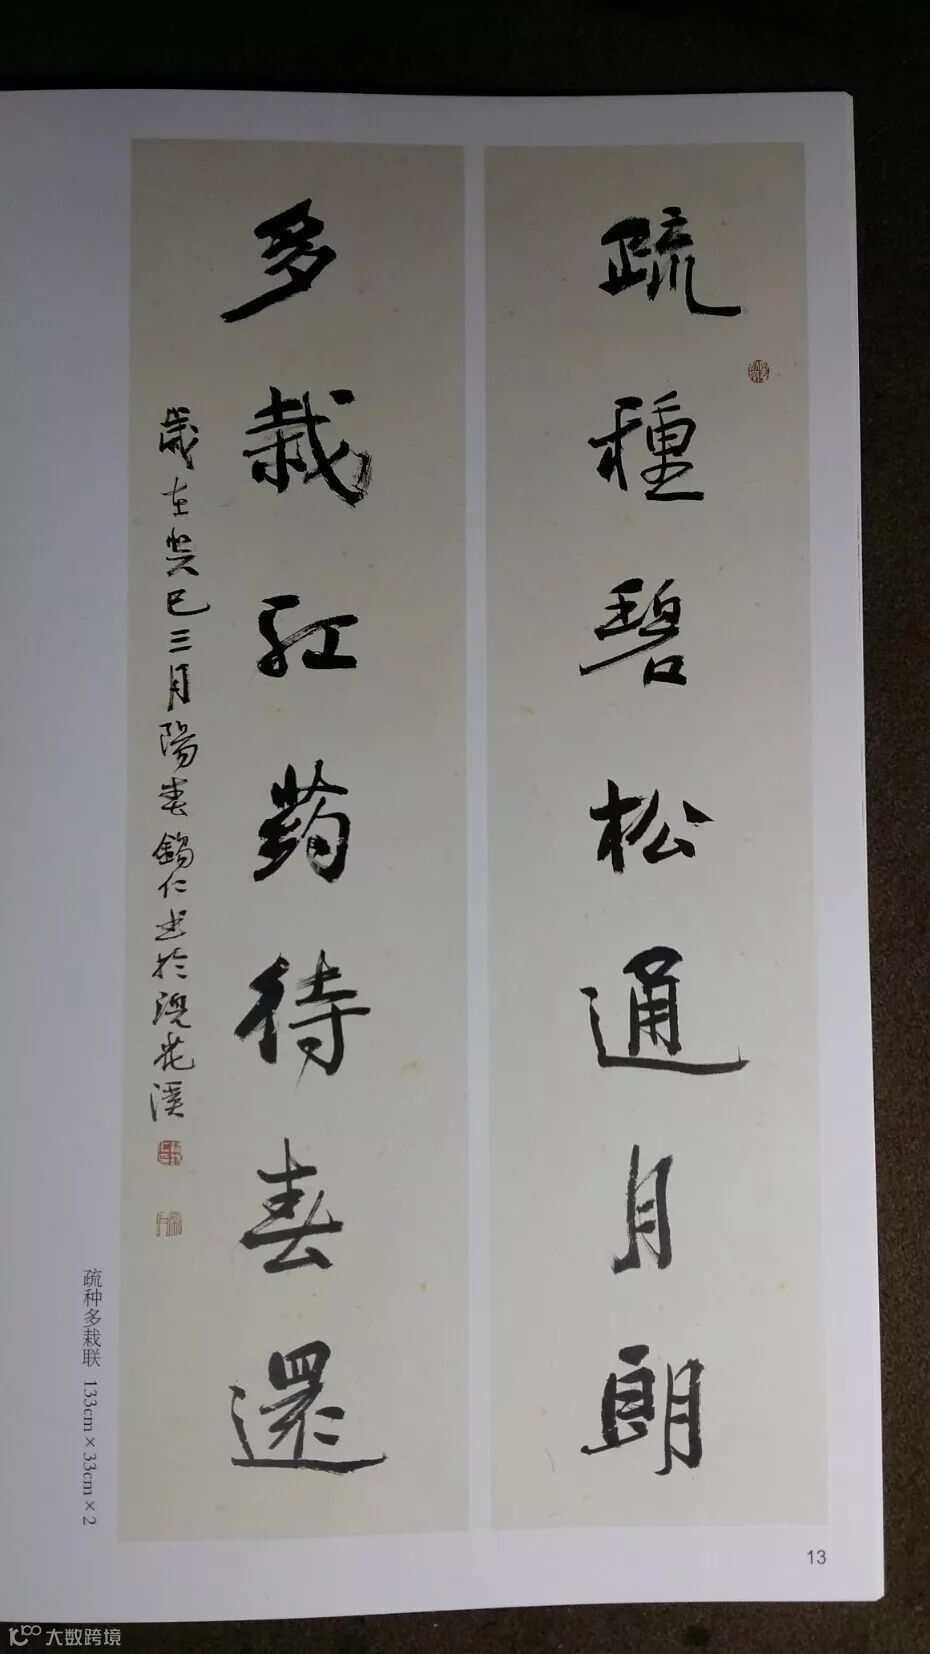 疏種碧松通月朗
多栽紅药待春還
歲在癸巳三月陽春錫仁书於浣花溪
疏种多栽联 133cm×33cm×2
13
大数跨境